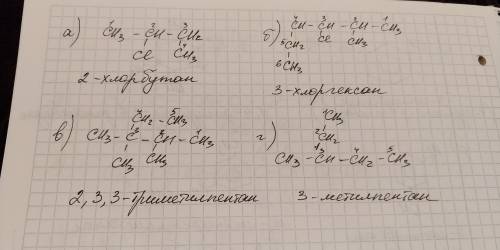 а) ¹CH₃ – ²CH – ³CH₂
Cl ⁴CH₃
2-хлорбутан
б) ⁴CH – ³CH – ²CH – ¹CH₃
⁵CH₂ Cl CH₃
⁶CH₃
3-хлоргексан
в) ⁴CH₂ – ⁵CH₃
CH₃ – C³ – ²CH – ¹CH₃
CH₃ CH₃
2,3,3-триметилпентан
г) ¹CH₃
²CH₂
CH₃ – ³CH – ⁴CH₂ – ⁵CH₃
3-метилпентан